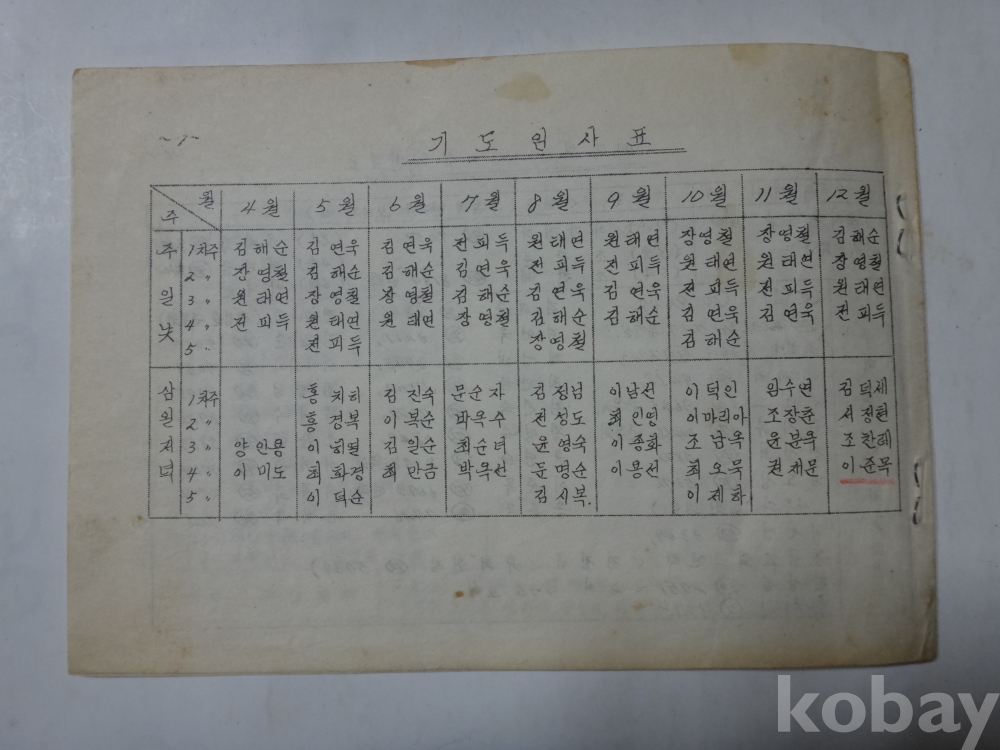 -7-
기도인사표
월 주 4월 5월 6월 7월 8월 9월 10월 11월 12월
주일낮
1차주 김해순 김연욱 김연욱 전피득 원태연 원태연 장영철 장영철 김해순
2 〃 장영철 김해순 김해순 김연욱 전피득 전피득 원태연 원태연 장영철
3 〃 원태연 장영철 장영철 김해순 김연욱 김연욱 전피득 전피득 원태연
4 〃 전피득 원태연 원태연 장영철 김해순 김해순 김연욱 김연욱 전피득
5 〃 전피득 장영철 김해순
삼일저녁
1차주 홍치히 김진숙 문순자 김정님 이남선 이덕인 임수연 김덕세
2 〃 홍경복 이복순 박옥수 전성도 최인영 이마리아 조장춘 서정현
3 〃 양인용 김일순 최순녀 윤영숙 이종화 조남옥 윤분옥 조찬례
4 〃 이미도 최화경 최만금 박옥선 문명순 이용선 최오묵 권재문 이준목
5 〃 이덕순 김시복. 이제하
kobay